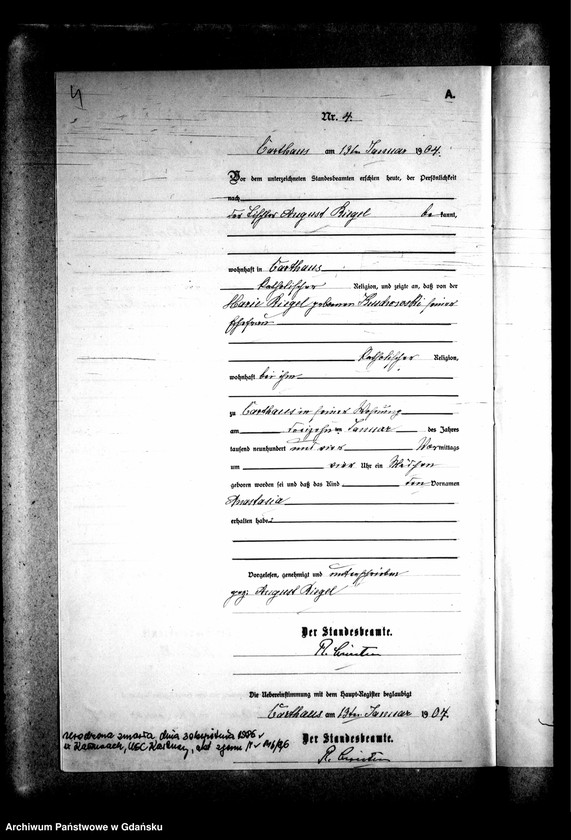 4
A.
Nr. 4.
Carthaus am 13ten Januar 1904.
Vor dem unterzeichneten Standesbeamten erschien heute, der Persönlichkeit
nach
der Tischler August Riegel bekannt,
wohnhaft in Carthaus
katholischer Religion, und zeigte an, daß von der
Marie Riegel geborenen seiner
Ehefrau
katholischer Religion,
wohnhaft bei ihm
zu Carthaus in seiner Wohnung
am dreizehnten Januar des Jahres
tausend neunhundert und vier Vormittags
um vier Uhr ein Mädchen
geboren worden sei und daß das Kind den Vornamen
Anastasia
erhalten habe.
Vorgelesen, genehmigt und unterschrieben
gez. August Riegel
Der Standesbeamte.
Die Uebereinstimmung mit dem Haupt-Register beglaubigt
Carthaus am 13ten Januar 1904.
Der Standesbeamte.
Urodzona zmarła dnia 1986 r
w Kartuzach, USC Kartuzy, akt zgonu
Archiwum Państwowe w Gdańsku